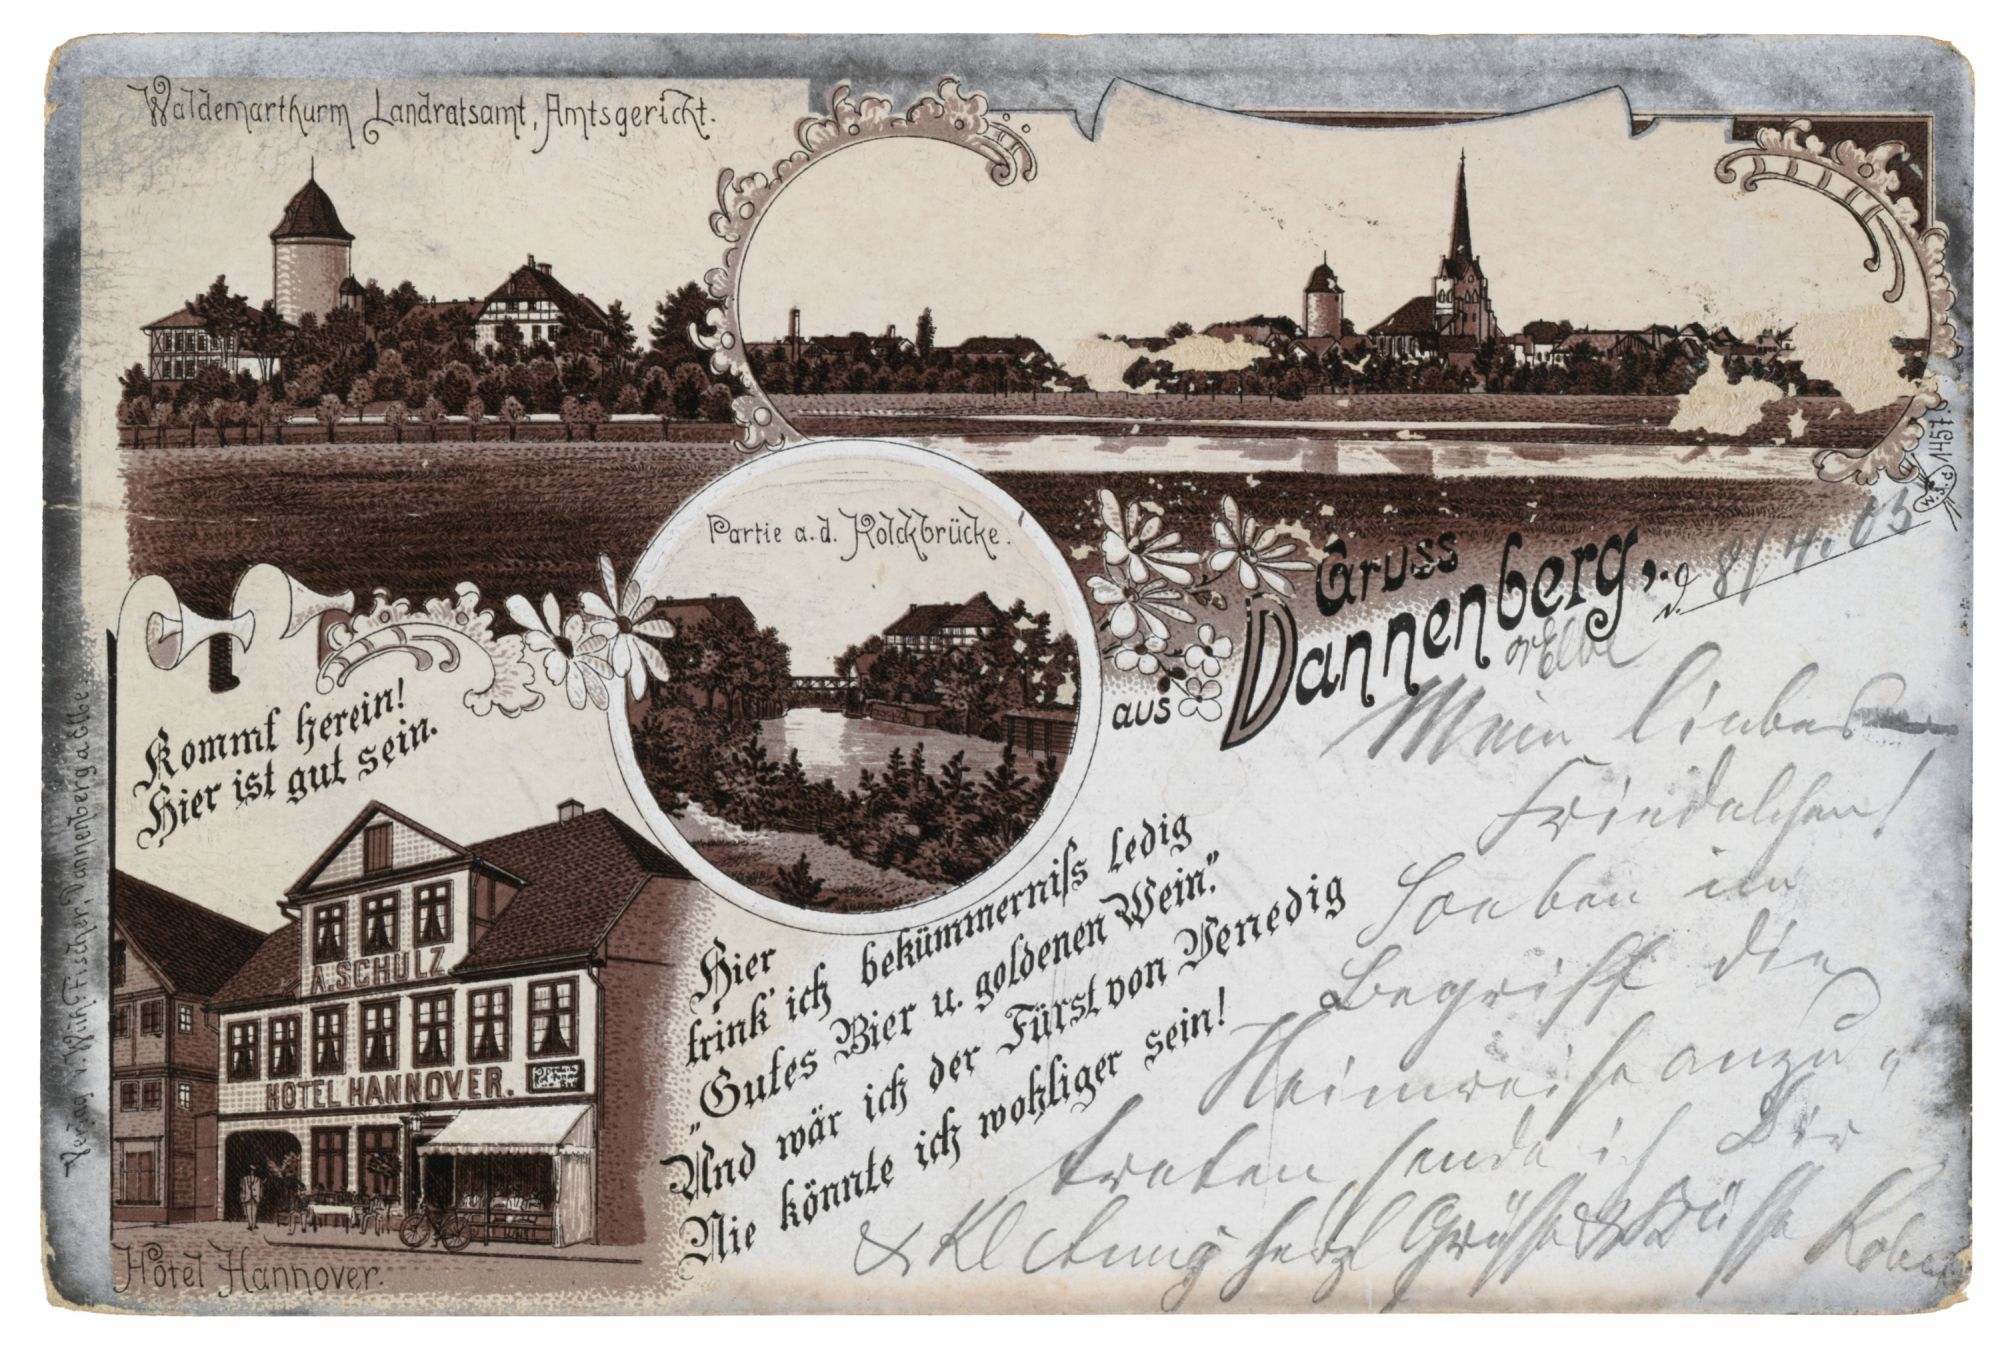 Waldemarthurm Landratsamt, Amtsgericht.
Partie a. d. Kolckbrücke.
W. S. d. 1457.
Gruss
aus Dannenberg, d. 8/4. 03
a/Elbe
Kommt herein!
Hier ist gut sein.
A. SCHULZ
HOTEL HANNOVER.
Hotel Hannover.
Verlag v. Wilh. Fischer, Dannenberg a Elbe
Hier
trink' ich bekümmerniſs ledig
"Gutes Bier u. goldenen Wein."
Und wär ich der Fürst von Venedig
Nie könnte ich wohliger sein!
Mein liebes
Friedelchen!
Soeben im
Begriff die
Heimreise anzu-
treten sende ich Dir
& Kl herzl Grüsse & Küsse